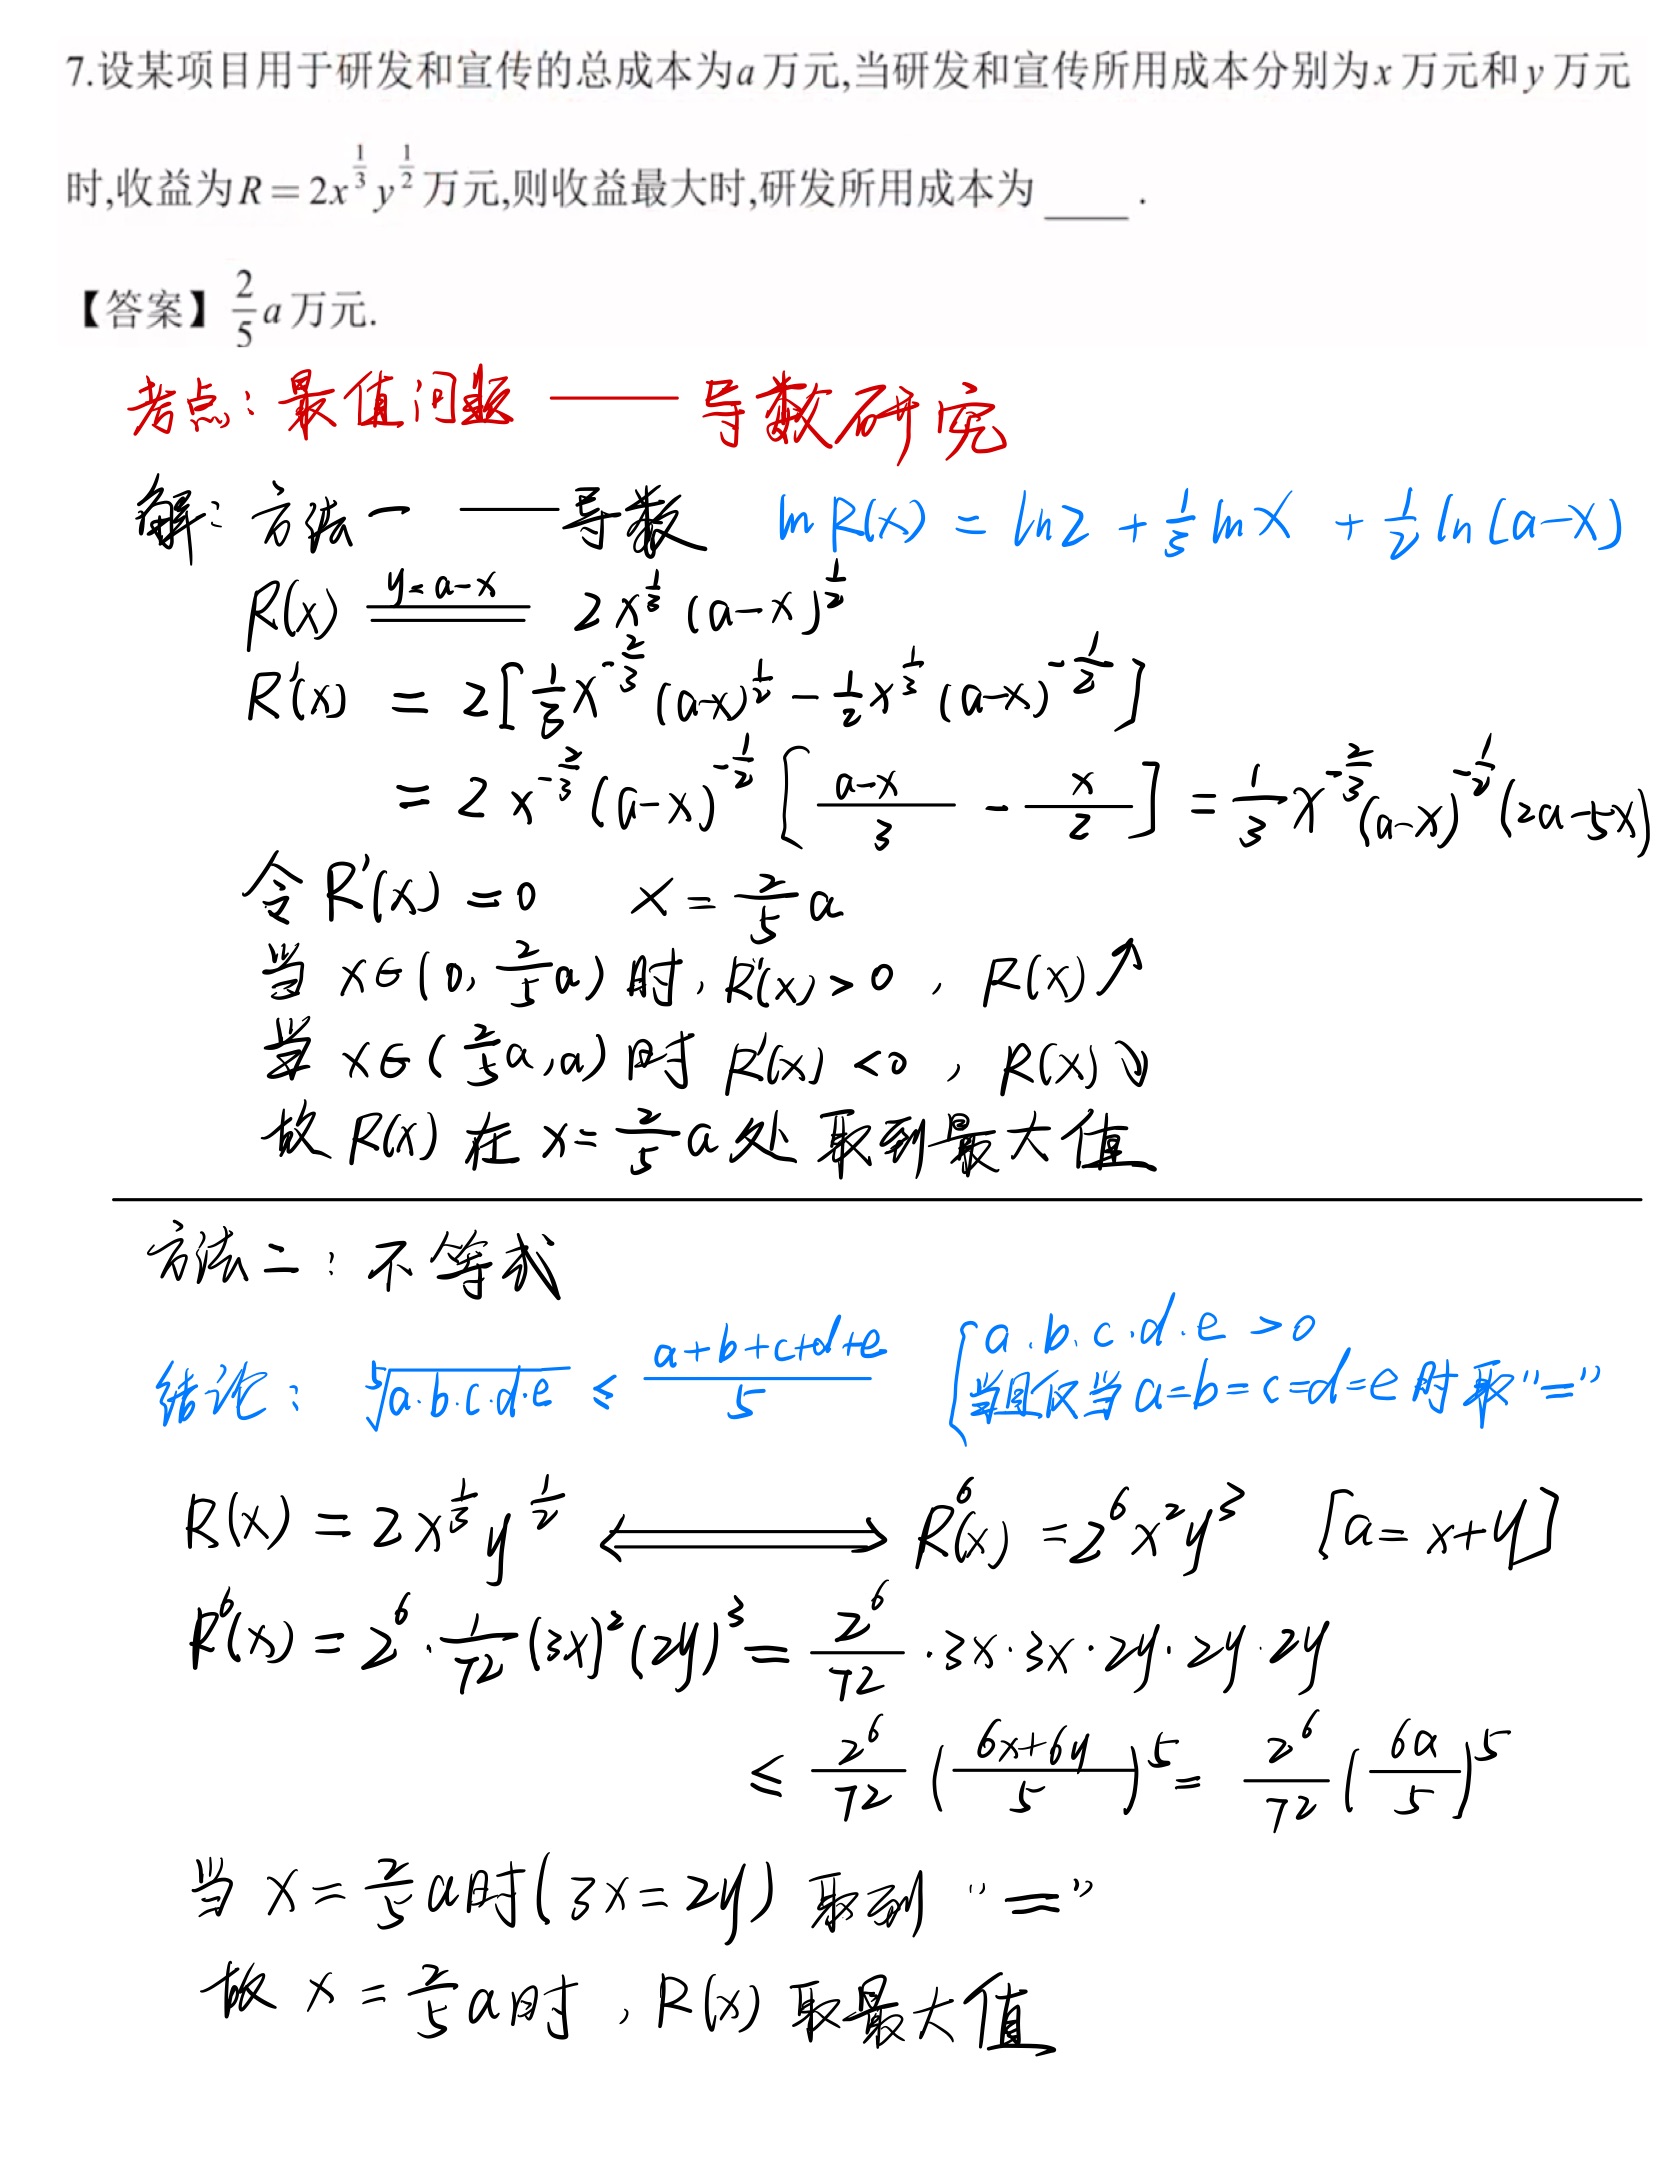 7.设某项目用于研发和宣传的总成本为a万元,当研发和宣传所用成本分别为x万元和y万元
时,收益为R=2x^{1/3}y^{1/2}万元,则收益最大时,研发所用成本为 ____ .
【答案】2/5 a万元.
考点:最值问题 —— 导数研究
解:方法一 —— 导数 ln R(x) = ln2 + 1/3 ln x + 1/2 ln(a-x)
R(x) \xlongequal{y=a-x} 2x^{1/3}(a-x)^{1/2}
R'(x) = 2[1/3 x^{-2/3}(a-x)^{1/2} - 1/2 x^{1/3}(a-x)^{-1/2}]
= 2x^{-2/3}(a-x)^{-1/2}[(a-x)/3 - x/2] = 1/3 x^{-2/3}(a-x)^{-1/2}(2a-5x)
令R'(x)=0 x=2/5 a
当x∈(0,2/5 a)时,R'(x)>0,R(x)↗
当x∈(2/5 a,a)时R'(x)<0,R(x)↘
故R(x)在x=2/5 a处取到最大值
方法二:不等式
结论: \sqrt[5]{a·b·c·d·e} ≤ (a+b+c+d+e)/5 { a.b.c.d.e>0
当且仅当a=b=c=d=e时取"="
R(x)=2x^{1/3}y^{1/2} ⟺ R^6(x)=2^6x^2y^3 [a=x+y]
R^6(x)=2^6·1/72(3x)^2(2y)^3=2^6/72·3x·3x·2y·2y·2y
≤ 2^6/72((6x+6y)/5)^5=2^6/72(6a/5)^5
当x=2/5 a时(3x=2y)取到"="
故x=2/5 a时,R(x)取最大值